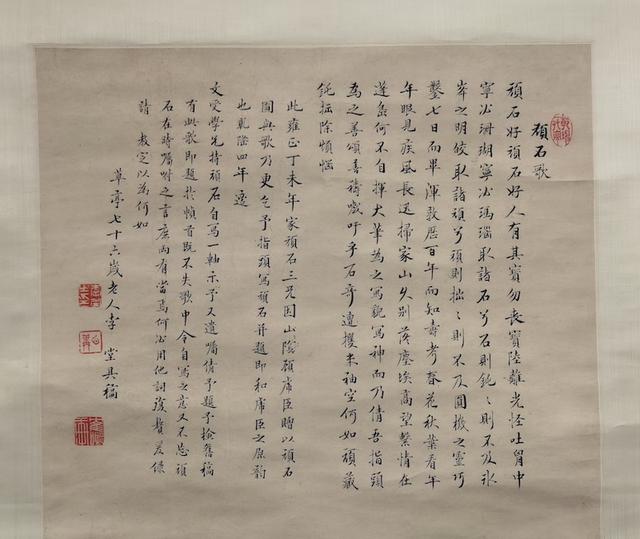 頑石歌
頑石好頑石好人有其寳勿喪寳陸離光怪吐胷中
寧必珊瑚寧必瑪瑙取諸石兮石則鈍鈍則不及氷
岑之明皎取諸頑兮頑則拙拙則不及圓機之靈巧
鑿七日而畢渾敦歷百年而知壽考春花秋葉看年
年眼見疾風長迅掃家山久别落塵埃高望繫情在
蓬島何不自揮大筆為之寫貌寫神而乃倩吾指頭
為之善頌善禱戲吁乎石奇遭攫米袖空何如頑藏
鈍拙除煩惱
此雍正丁未年家頑石三兄因山陰頑席臣時以頑石
圖與歌乃更乞予指頭寫頑石并題即和席臣之原韵
也乾隆四年
文受學先持頑石自寫一軸示予又遺囑倩予題予撿舊稿
有此歌即題於幀首既不失歌中令自寫之意又不忘頑
石在時囑咐之言庶兩有當焉何必用他詞後賢差傑
請 教定以為何如
七十六歲老人李 堂具稿